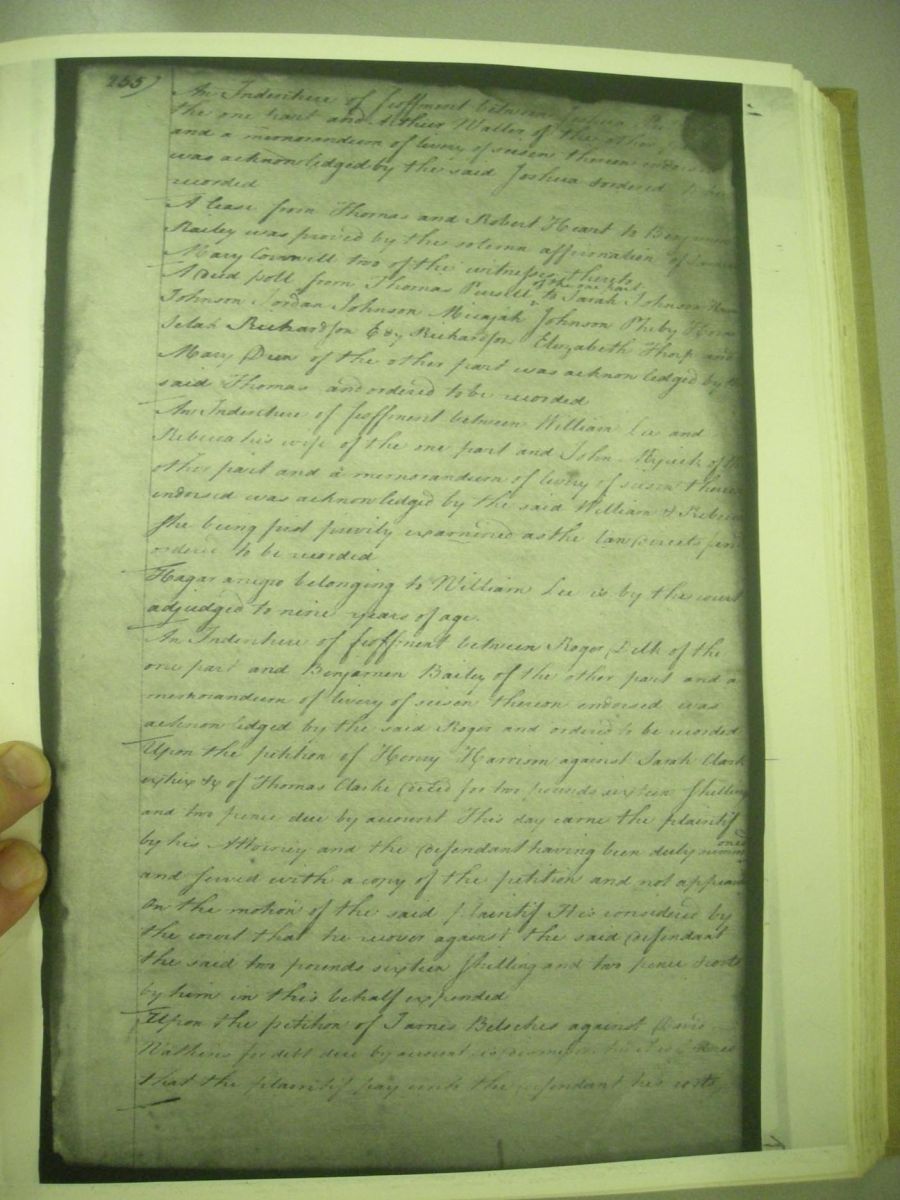 255)
An Indenture of feoffment between Joshua
the one part and Walter of the other
and a memorandum of livery of seisen thereon endorsed
was acknowledged by the said Joshua & ordered to be
recorded
A lease from Thomas and Robert Heart to Benjamin
Bailey was proved by the solemn affirmation of
Mary two of the witnesses thereto
A Deed poll from Thomas of the one part to Sarah Johnson
Johnson Jordan Johnson Micajah Johnson Pheby
Selah Richardson Richardson Elizabeth Thorp and
Mary of the other part was acknowledged by the
said Thomas and ordered to be recorded
An Indenture of feoffment between William Lee and
Rebecca his wife of the one part and John of the
other part and a memorandum of livery of seisen thereon
endorsed was acknowledged by the said William & Rebecca
she being first privily examined as the law directs and
ordered to be recorded
Hagar a negro belonging to William Lee is by the court
adjudged to nine years of age.
An Indenture of feoffment between Roger Delk of the
one part and Benjamen Bailey of the other part and a
memorandum of livery of seisen thereon endorsed was
acknowledged by the said Roger and ordered to be recorded
Upon the petition of Henry Harrison against Sarah Clark
extrix &c of Thomas Clarke deced for two pounds sixteen shilling
and two pence due by account This day came the plaintif
by his Attorney and the defendant having been duly summoned
and served with a copy of the petition and not appearing
On the motion of the said plaintif It is considered by
the court that he recover against the said defendant
the said two pounds sixteen shilling and two pence & costs
by him in this behalf expended
Upon the petition of James Belsches against David
Watkins for debt due by account is dismissed
that the plaintif pay unto the defendant his costs